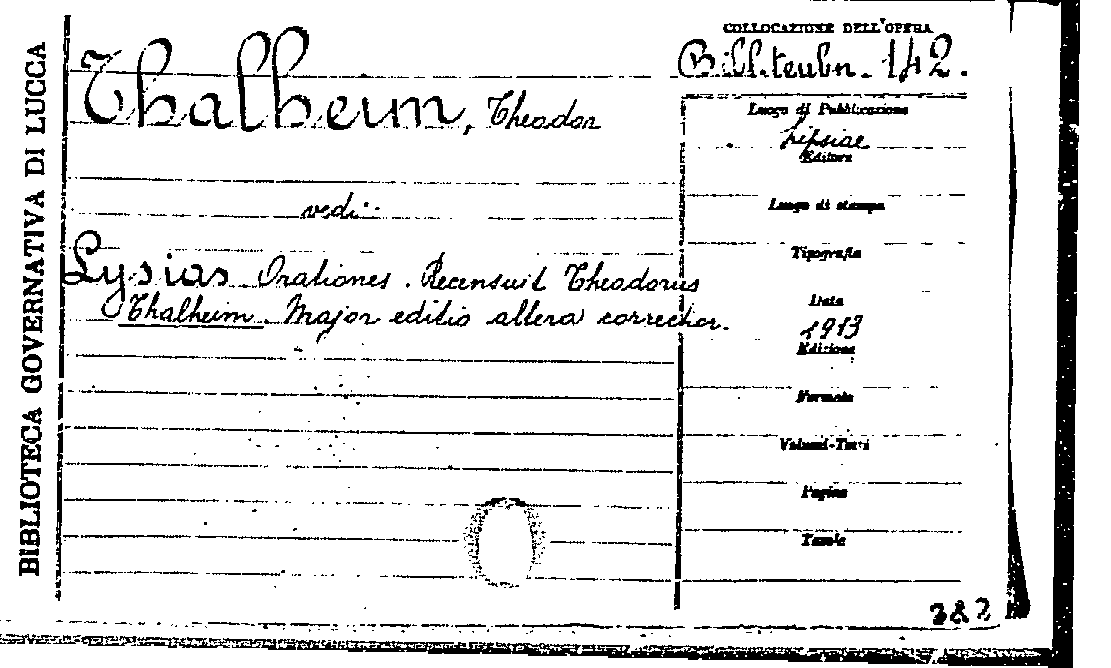 BIBLIOTECA GOVERNATIVA DI LUCCA
COLLOCAZIONE DELL'OPERA
Bibl. teubn. 142.
Thalheim, Theodor
vedi:
Lysias Orationes. Recensuit Theodorus
Thalheim. Major editio altera correctior.
Luogo di Pubblicazione
Lipsiae
Editore
Luogo di stampa
Tipografia
Data
1913
Edizione
Formato
Volumi-Tomi
Pagine
Tavole